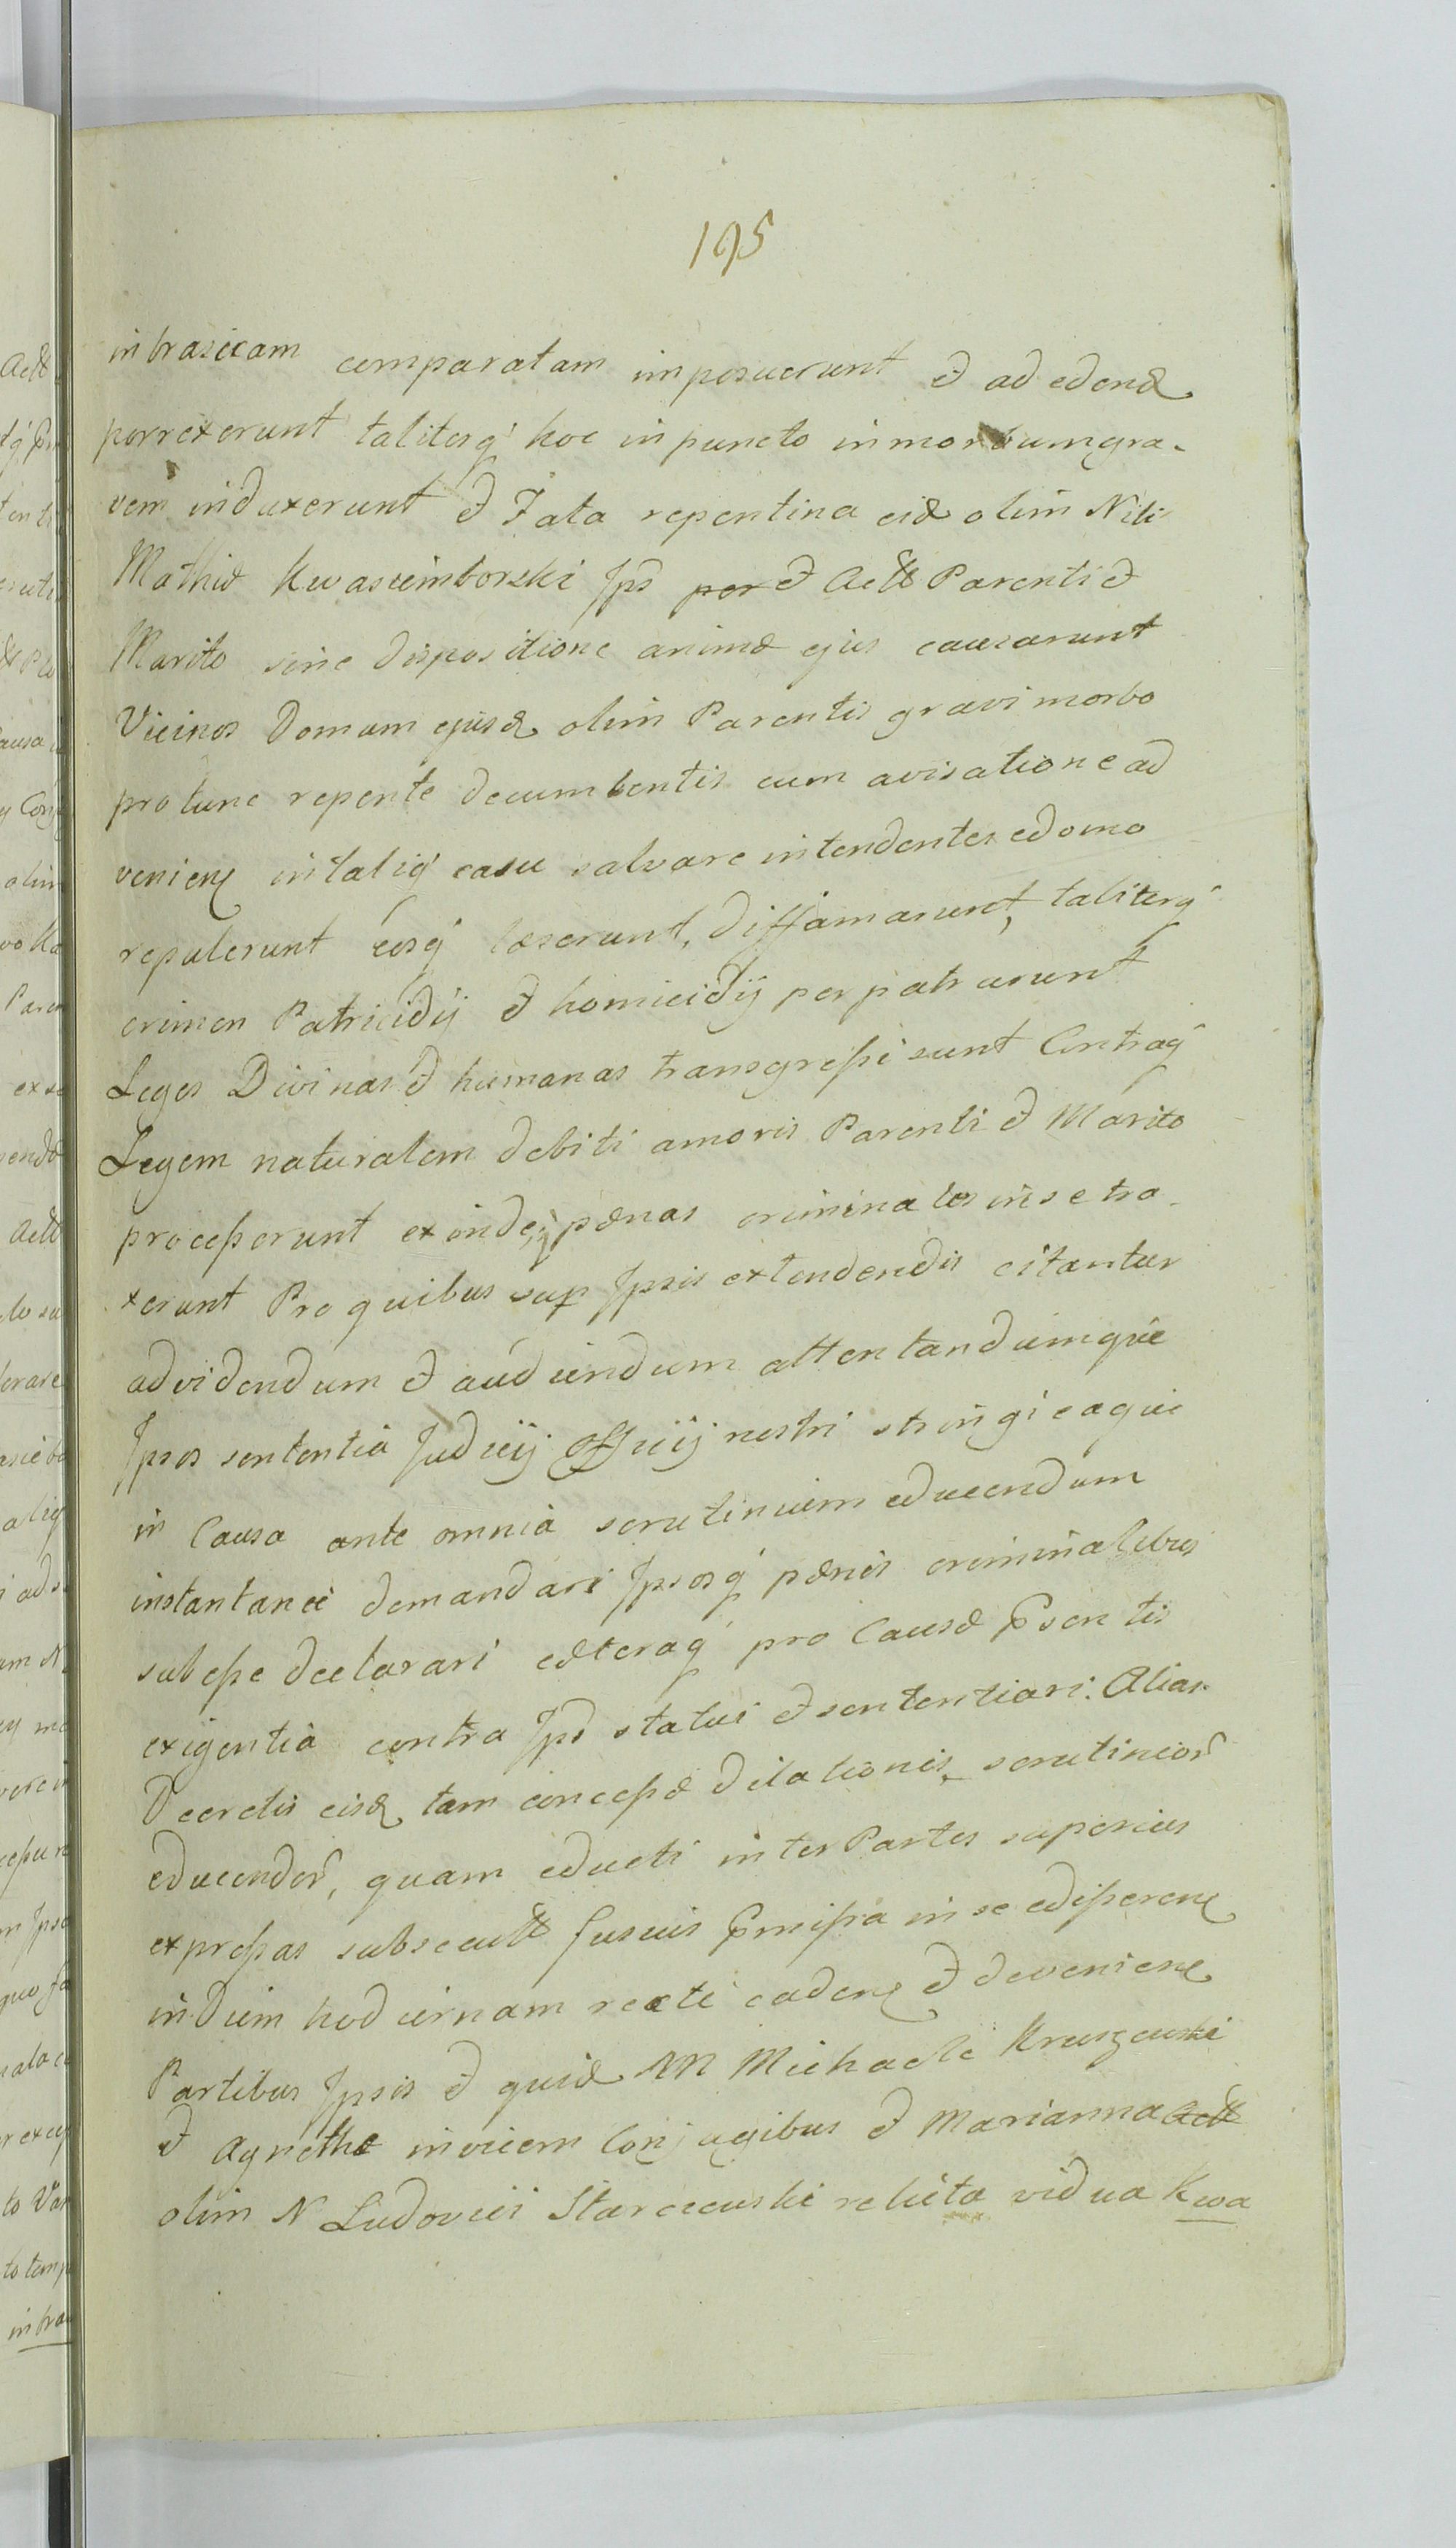 195
in brasicam comparatam imposuerunt & ad edend
porrexerunt taliterq' hoc in puncto in morbum gra-
vem induxerunt & Fata repentina eid olim Nbli
Mathiæ Kwasieimborski Jps per & Actt Parenti &
Marito sine dispositione animæ ejus causarunt
Vicinos Domum ejusd olim Parentis gravi morbo
protunc repente decumbentis cum avisatione ad
venien in taliq' casu salvare intendentes e domo
repulerunt eosq' læserunt, diffamarunt, taliterq'
crimen Patricidij & homicidij perpatrarunt
Leges Divinas & humanas transgreßi sunt Contraq'
Legem naturalem debiti amoris Parenti & Marito
proceßerunt exindeq' pænas criminales in se tra-
xerunt Pro quibus sup Jpsis extendendis citantur
ad videndum & audiendum attentandumque
Jpsos sententia Judicij Officij nostri stringi eaque
in Causa ante omnia scrutinium educendum
instantanei demandari Jpsosq' pænis criminalibus
subeße declarari cæteraq' pro Causæ Psentis
exigentia contra Jps statui & sententiari. Alias
Decretis eisd tam conceßæ dilationis scrutinior
educendor, quam educti inter Partes superius
expreßas subsecutt fusius Pmißa in se edißeren
in Diem hodiernam recte caden & devenien
Partibus Jpsis & quid NN Michaele Kruszewski
& Agnethe invicem Conjugibus & Marianna Actt
olim N Ludovici Starczewski relicta vidua Kwa